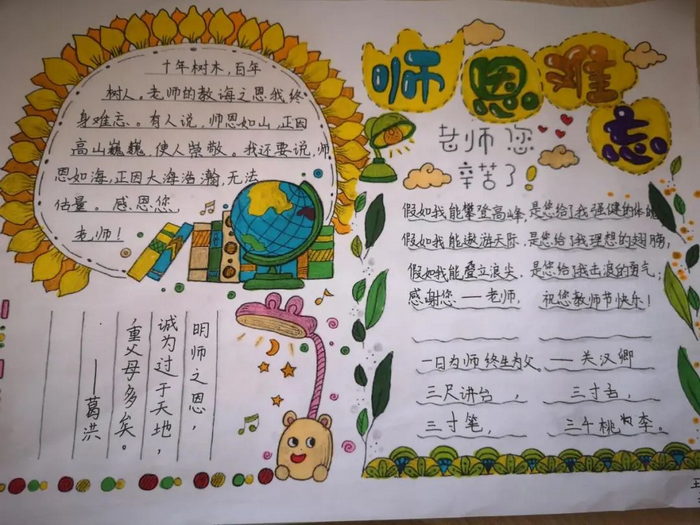 师恩难忘
老师您
辛苦了!
十年树木,百年
树人。老师的教诲之恩我终
身难忘。有人说,师恩如山,正因
高山巍巍,使人崇敬。我还要说,师
恩如海,正因大海浩瀚,无法
估量。感恩您,
老师!
假如我能攀登高峰,是您给了我强健的体魄
假如我能遨游天际,是您给了我理想的翅膀,
假如我能叠立浪尖,是您给了我击浪的勇气;
感谢您——老师, 祝您教师节快乐!
一日为师终生为父。——关汉卿
三尺讲台, 三寸舌,
三寸笔, 三千桃李。
明师之恩,
诚为过于天地,
重父母多矣。
——葛洪
王